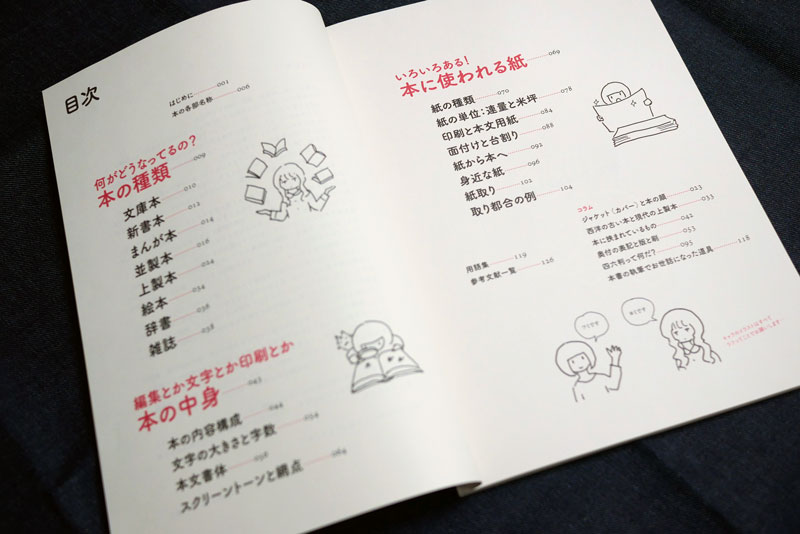 目次
はじめに 001
本の各部名称 006
何がどうなってるの? 009
本の種類
文庫本 010
新書本 012
まんが本 014
並製本 018
上製本 024
絵本 034
辞書 036
雑誌 038
編集とか文字とか印刷とか
本の中身 043
本の内容構成 044
文字の大きさと字数 054
本文書体 058
スクリーントーンと網点 064
いろいろある!
本に使われる紙 069
紙の種類 070
紙の単位:連量と米坪 078
印刷と本文用紙 084
面付けと台割り 088
紙から本へ 092
身近な紙 096
紙取り 102
取り都合の例 104
コラム
ジャケット(カバー)と本の顔 023
西洋の古い本と現代の上製本 033
本に挟まれているもの 042
奥付の表記と版と刷 053
四六判って何だ? 095
本書の執筆でお世話になった道具 118
用語集 119
参考文献一覧 126